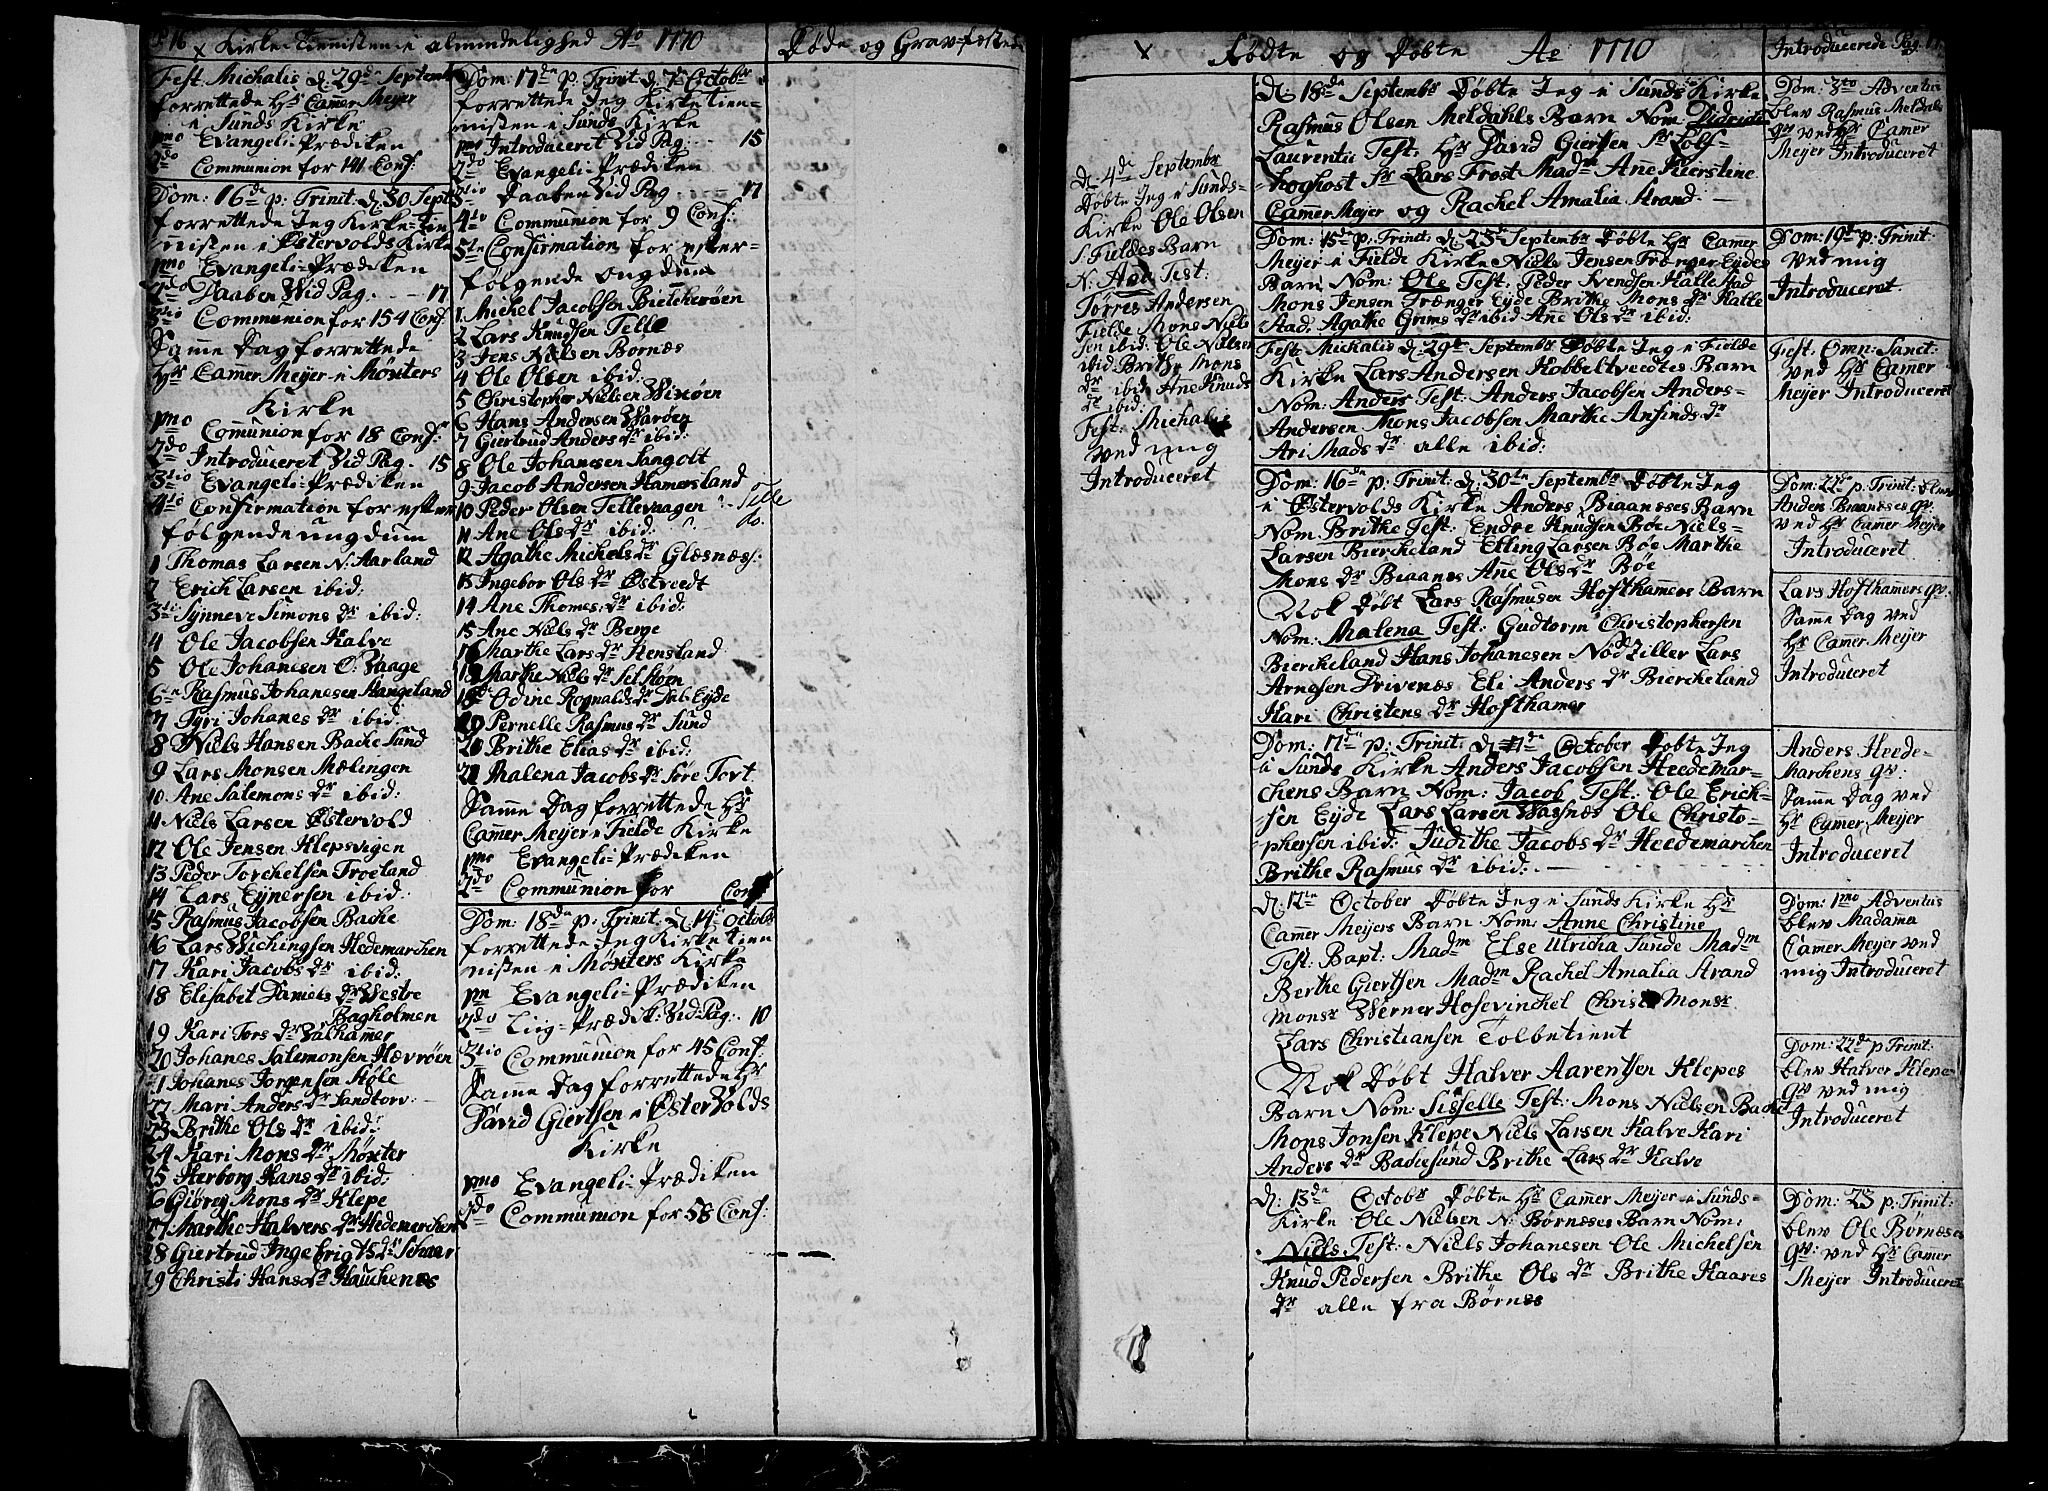 P: 16 Kirke-Tienisten i almindelighed Ao 1770
Døde og Grav-fæstede
Fest: Michalis d: 29de Septembr
forrettede Hr Camer Meijer
i Sunds Kirke
pmo Evangeli-Prædiken
2do Communion for 141 Conf:
Dom: 16de p: Trinit: d: 30 Sept
forrettede Jeg Kirke-Tie
nnisten i Østervolds Kirke
pmo Evangeli-Prædiken
2do Daaben Vid Pag. - - 17
3tio Communion for 154 Conf:
Samme Dag forrettede
Hr Camer Meijer i Møxters
Kirke
pmo Communion for 18 Conf:
2do Introduceret Vid Pag. 15
3tio Evangeli-Prædiken
4to Confirmation for efter
følgende ungdum
1 Thomas Larsen N: Aarland
2 Erich Larsen ibid:
3ti Synneve Simons dr ibid:
4 Ole Jacobsen Kalve
5 Ole Johanesen O: Vaage
6te Rasmus Johanesen Hangeland
7 Tyri Johanes dr ibid:
8 Niels Hansen Backe Sund
9 Lars Monsen Mælingen
10 Ane Salemons dr ibid:
11 Niels Larsen Østervold
12 Ole Jensen Klepsvigen
13 Peder Torchelsen Troeland
14 Lars Eynersen ibid:
15 Rasmus Jacobsen Backe
16 Lars Wichingsen Hedemarchen
17 Kari Jacobs dr ibid:
18 Elisabet Daniels dr Westre
Bagholmen
19 Kari Tors dr Valhammer
20 Johanes Salemonsen Hævrøen
21 Johanes Jorgensen Støle
22 Mari Anders dr Sandtorv
23 Brithe Ols dr ibid:
24 Kari Mons dr Møxter
25 Herborg Hans dr ibid:
26 Giørej Mons dr Klepe
27 Marthe Halvers dr Hedemarchen
28 Giertrud Ingebrigts dr Schaar
29 Christi Hans dr Hauchenes
Dom: 17de p: Trinit d: 7de Octobr
forrettede Jeg Kirketien=
nisten i Sunds Kirke
pmo Introduceret Vid Pag: - - 15
2do Evangeli-Prædiken
3tio Daaben Vid Pag - - - 17
4to Communion for 9 Conf:
5te Confirmation for efter=
følgende ongdum
1. Michel Jacobsen Bielcherøen
2 Lars Knudsen Telle
3 Jens Nielsen Børnæs
4 Ole Olsen ibid:
5 Christopher Nielsen Wixøen
6 Hans Andersen Warøen
7 Giertrud Anders dr ibid:
8 Ole Johanesen Sangolt
9 Jacob Andersen Hamersland
10 Peder Olsen Tellevaagen : - Telle
11 Ane Ols dr ibid: - do.
12 Agathe Michels dr Glæsnæs:
13 Ingebor Ols dr Østvedt
14 Ane Thomes: dr ibid:
15 Ane Niels dr Berge
16 Marthe Lars dr Stensland
17 Marthe Niels dr Sel Støen
18 Odine Rognalds dr Eyde
19 Pernelle Rasmus dr Sund
20 Brithe Elias dr ibid:
21 Malena Jacobs dr Søre Tort
Samme Dag forrettede Hr
Camer Meijer i Fielde Kirke
pmo Evangeli-Prædiken
2do Communion for Conf
Dom: 18de p: Trinit d: 14de Octobr
forrettede Jeg Kirketien
nisten i Møxters Kirke
pm Evangeli-Prædiken
2do Liig-Prædik: Vid Pag: 10
3tio Communion for 45 Conf:
Samme Dag forrettede Hr
David Giertsen i Østervolds
Kirke
pmo Evangeli-Prædiken
2do Communion for 58 Conf:
Fødte og Døbte Ao 1770
Introducerede Pag 17
d: 4de Septembr
Døbte Jeg i Sunds-
Kirke Ole Olsen
S: Fieldes Barn
N: Test:
Tørres Andersen
Fielde Mons Niel
sen ibid: Ole Nielsen
ibid Brithe Mons
dr ibid Ane Knuds
dr ibid:
Fest: Michalis
ved mig
Introduceret
D: 18de Septembr Døbte Jeg i Sunds Kirke
Rasmus Olsen Meldahls Barn Nom: Didrich
Laurentii Test. Hr David Giertsen Sr
Lars Frost Madme Ane Kierstine
Camer Meijer og Rachel Amalia Strand. —
Dom: 3tio Adventus
blev Rasmus Meldahls
qv ved Hr Camer
Meijer Introduceret
Dom: 15de p: Trinit: d: 23de Septembr Døbte Hr Camer
Meijer i Fielde Kirke Niels Jensen Trænger Eydes
Barn Nom: Ole Test. Peder Svendsen Halle Stad
Mons Jensen Trænger Eyde Brithe Mons dr Halle
Stad. Agathe Grims dr ibid: Ane Ols dr ibid:
Dom: 19de p: Trinit:
ved mig
Introduceret
Fest: Michalis d: 29de Septembr Døbte Jeg i Fielde
Kirke Lars Andersen Kobbeltvedtes Barn
Nom: Anders Test. Anders Jacobsen Anders=
Andersen Mons Jacobsen Marthe Ansinds dr
Ari Mads dr alle ibid:
Fest: Omn: Sanct:
ved Hr Camer
Meijer Introduceret
Dom: 16de p: Trinit: d: 30te Septembr Døbte Jeg
i Østervolds Kirke Anders Biaaneses Barn
Nom: Brithe Test: Endre Knudsen Bøe Niels=
Larsen Bierckeland Elling Larsen Bøe Marthe
Mons dr Biaanes Ane Ols dr Bøe
Dom: 22de p: Trinit: blev
Anders Biaaneses qv:
ved Hr Camer Meijer
Introduceret
Nok Døbt Lars Rasmusen Hofthamers Barn
Nom: Malena Test: Gudtorm Christophersen
Bierckeland Hans Johanesen Nødziller Lars
Arnesen Drivenæs Eli Anders dr Bierckeland
Kari Christens dr Hofthamer
Lars Hofthamers qv:
Samme Dag ved
Hr Camer Meijer
Introduceret
Dom: 17de p: Trinit: d: 7de October Døbte Jeg
i Sunds Kirke Anders Jacobsen Heedemar=
chens Barn Nom: Jacob Test: Ole Erick=
sen Eyde Lars Larsen Vasnæs Ole Christo=
phersen ibid: Judithe Jacobs dr Heedemarchen
Brithe Rasmus dr ibid: —
Anders Heede-
Marchens qv:
Samme Dag ved
Hr Camer Meijer
Introduceret
D: 12te October Døbte Jeg i Sunds Kirke Hr
Camer Meijers Barn Nom: Anne Christine
Test: Bapt: Madm Else Ulricha Sunde Madm
Berthe Giertsen Madm Rachel Amalia Strand
Monsr Werner Hosevinckel Christ Monsr
Lars Christiansen Tolbetient
Dom: 1mo Adventus
blev Madama
Camer Meijer ved
mig Introduceret
Nok Døbt Halver Aarentsen Klepes
Barn Nom: Sisselle Test: Mons Nielsen Backe
Mons Jonsen Klepe Niels Larsen Kalve Kari
Anders dr Backesund Brithe Lars dr Kalve
Dom: 22de p Trinit:
blev Halver Klepe
qv ved mig
Introduceret
D: 13de Octobr Døbte Hr Camer Meijer i Sunds-
Kirke Ole Nielsen N: Børneses Barn Nom:
Niels Test: Niels Johanesen Ole Michelsen
Knud Pedersen Brithe Ols dr Brithe Haares
dr alle fra Børnes
Dom: 23 p: Trinit:
blev Ole Børneses
qv: ved Hr Camer
Meijer Introduceret